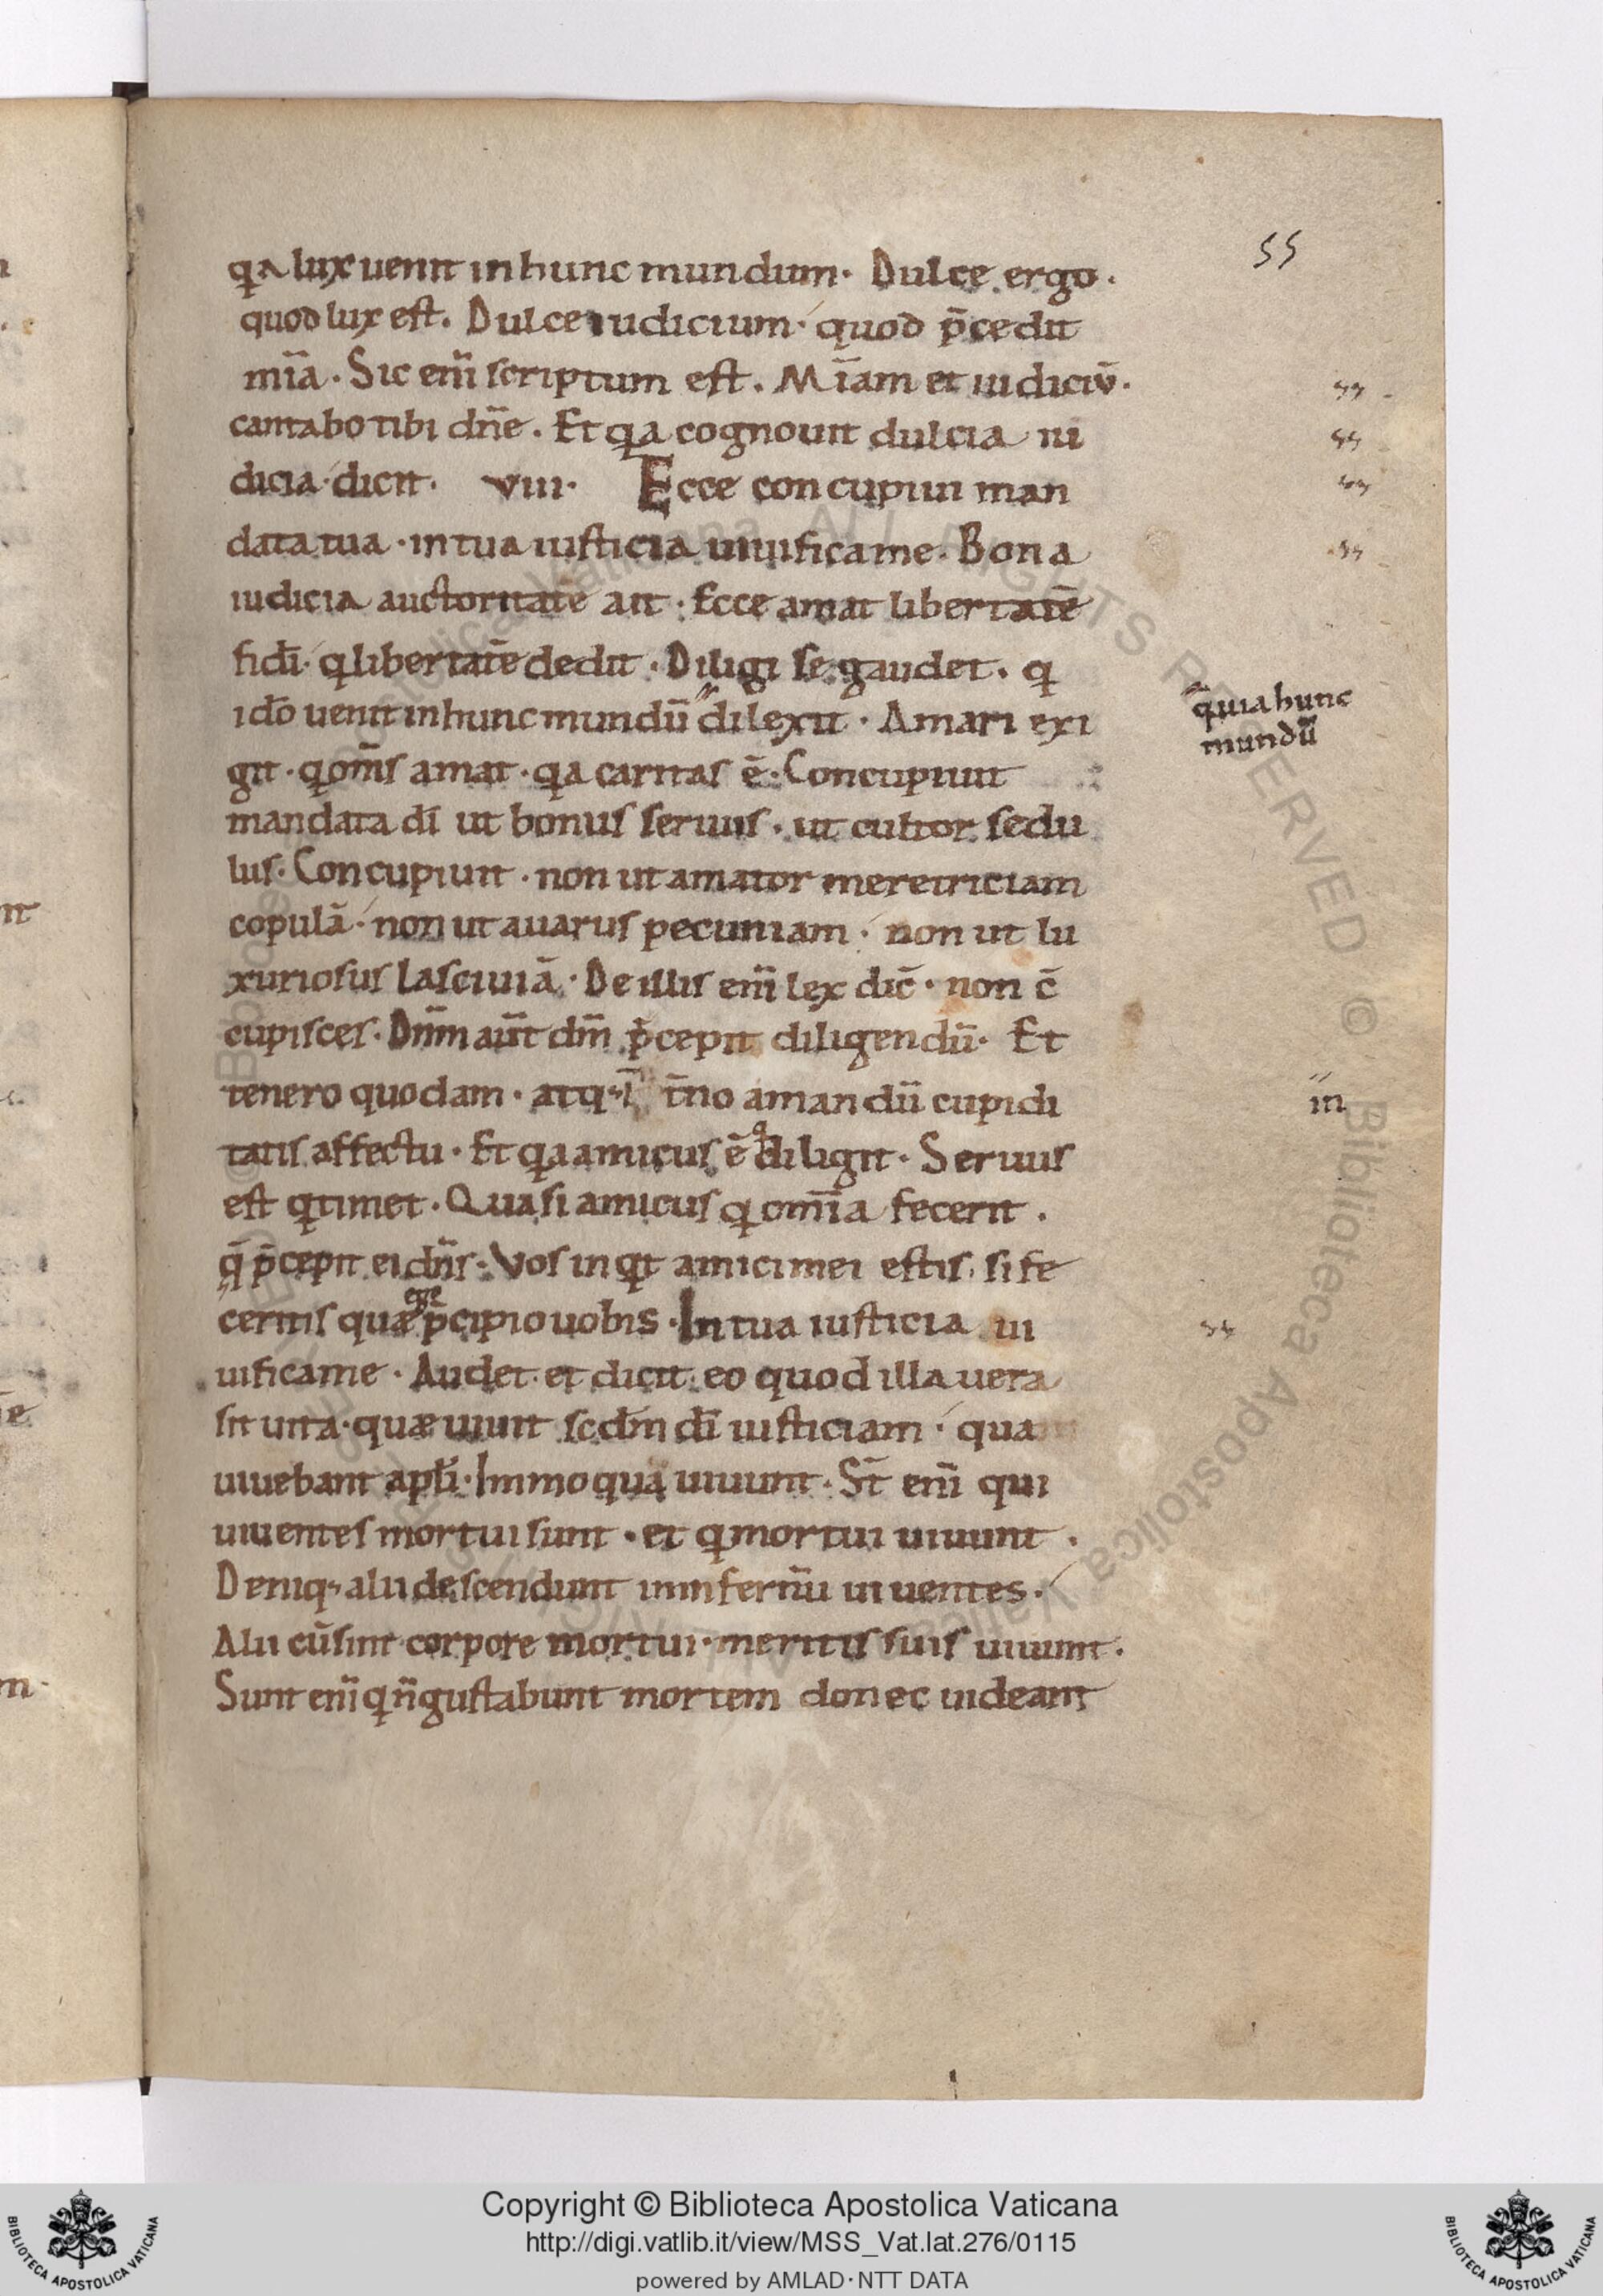 55
qa lux uenit in hunc mundum. Dulce ergo.
quod lux est. Dulce iudicium. quod p̄cedit
mīa. Sic enī scriptum est. Mīam et iudiciū.
cantabo tibi dn̄e. Et qa cognouit dulcia iu
dicia dicit. VIII. Ecce concupiui man
data tua. in tua iusticia uiuifica me. Bona
iudicia auctoritatē ait. Ecce amat libertatē
fidī. q libertatē dedit. Diligi se gaudet. q
idō uenit in hunc mundū dilexit. Amari exi
git. q om̄s amat. qa caritas ē. Concupiuit
q̄uia hunc
mundū
mandata dī ut bonus seruus. ut cultor sedu
lus. Concupiuit. non ut amator meretriciam
copulā. non ut auarus pecuniam. non ut lu
xuriosus lasciuiā. De illis enī lex dic̄. non c̄
cupisces. Dn̄m aūt dm̄ p̄cepit diligendū. Et
tenero quodam. atq; ī t̄no amandū cupidi
in
tatis affectu. Et qa amicus ē q diligit. Seruus
est q timet. Quasi amicus q om̄ia fecerit.
q̄ p̄cepit ei dn̄s. Vos inqt amici mei estis. si fe
ceritis quæ ege p̄cipio uobis. In tua iusticia ui
uifica me. Audet et dicit eo quod illa uera
sit uita. quæ uiuit scdm̄ dī iusticiam. qua
uiuebant apl̄i. Immo qua uiuunt. St̄ enī qui
uiuentes mortui sunt. et q mortui uiuunt.
Deniq; alii descendunt in infernū uiuentes.
Alii cū sint corpore mortui. meritis suis uiuunt.
Sunt enī q n̄ gustabunt mortem donec uideant
Copyright © Biblioteca Apostolica Vaticana
http://digi.vatlib.it/view/MSS_Vat.lat.276/0115
powered by AMLAD·NTT DATA
BIBLIOTECA APOSTOLICA VATICANA
BIBLIOTECA APOSTOLICA VATICANA